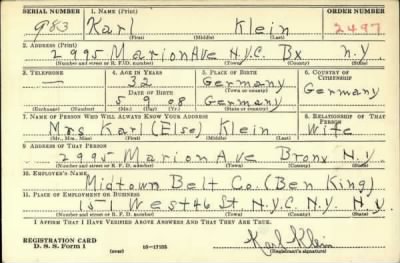 SERIAL NUMBER 1. NAME (Print) ORDER NUMBER
983 Karl Klein 2497
(First) (Middle) (Last)
2. ADDRESS (Print)
2995 Marion Ave N.Y.C. Bx N.Y.
(Number and street or R. F. D. number) (Town) (County) (State)
3. TELEPHONE 4. AGE IN YEARS 5. PLACE OF BIRTH 6. COUNTRY OF CITIZENSHIP
— 32 Germany Germany
DATE OF BIRTH (Town or county)
5 9 08 Germany
(Exchange) (Number) (Mo.) (Day) (Yr.) (State or country)
7. NAME OF PERSON WHO WILL ALWAYS KNOW YOUR ADDRESS 8. RELATIONSHIP OF THAT PERSON
Mrs Karl (Else) Klein Wife
(Mr., Mrs., Miss) (First) (Middle) (Last)
9. ADDRESS OF THAT PERSON
2995 Marion Ave Bronx N.Y.
(Number and street or R. F. D. number) (Town) (County) (State)
10. EMPLOYER'S NAME
Midtown Belt Co. (Ben King)
11. PLACE OF EMPLOYMENT OR BUSINESS
151 West 46 St N.Y.C. N.Y. N.Y.
(Number and street or R. F. D. number) (Town) (County) (State)
I AFFIRM THAT I HAVE VERIFIED ABOVE ANSWERS AND THAT THEY ARE TRUE.
Karl Klein
REGISTRATION CARD
D. S. S. Form 1 (over) 16—17105 (Registrant's signature)